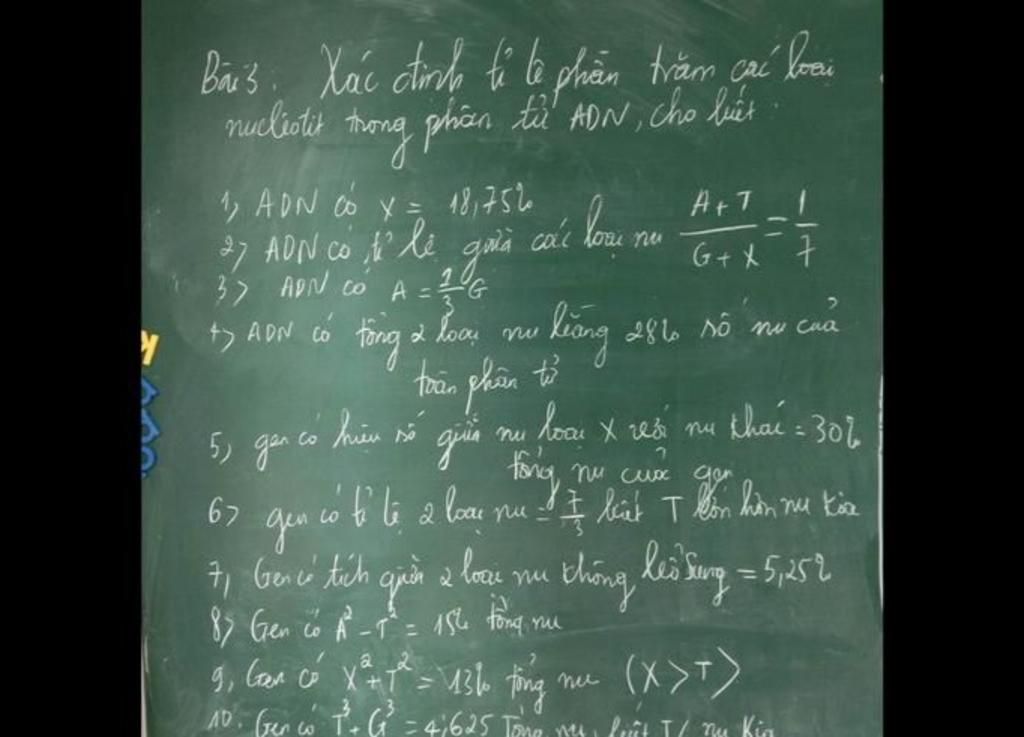 Bài 3. Xác định tỉ lệ phần trăm các loại
nucleotit trong phân tử ADN, cho biết:
1, ADN có X = 18,75%
2, ADN có tỉ lệ giữa các loại nu A+T/G+X = 1/7
3, ADN có A = 2/3 G
4, ADN có tổng 2 loại nu bằng 28% số nu của
toàn phân tử
5, gen có hiệu số giữa nu loại X với nu khác = 30%
tổng nu của gen
6, gen có tỉ lệ 2 loại nu = 7/3 biết T lớn hơn nu kia
7, Gen có tích giữa 2 loại nu không bổ sung = 5,25%
8, Gen có A² - T² = 15% tổng nu
9, Gen có X² + T² = 13% tổng nu (X > T)
10. Gen có T³ + G³ = 4,625 tổng nu, biết T < nu kia